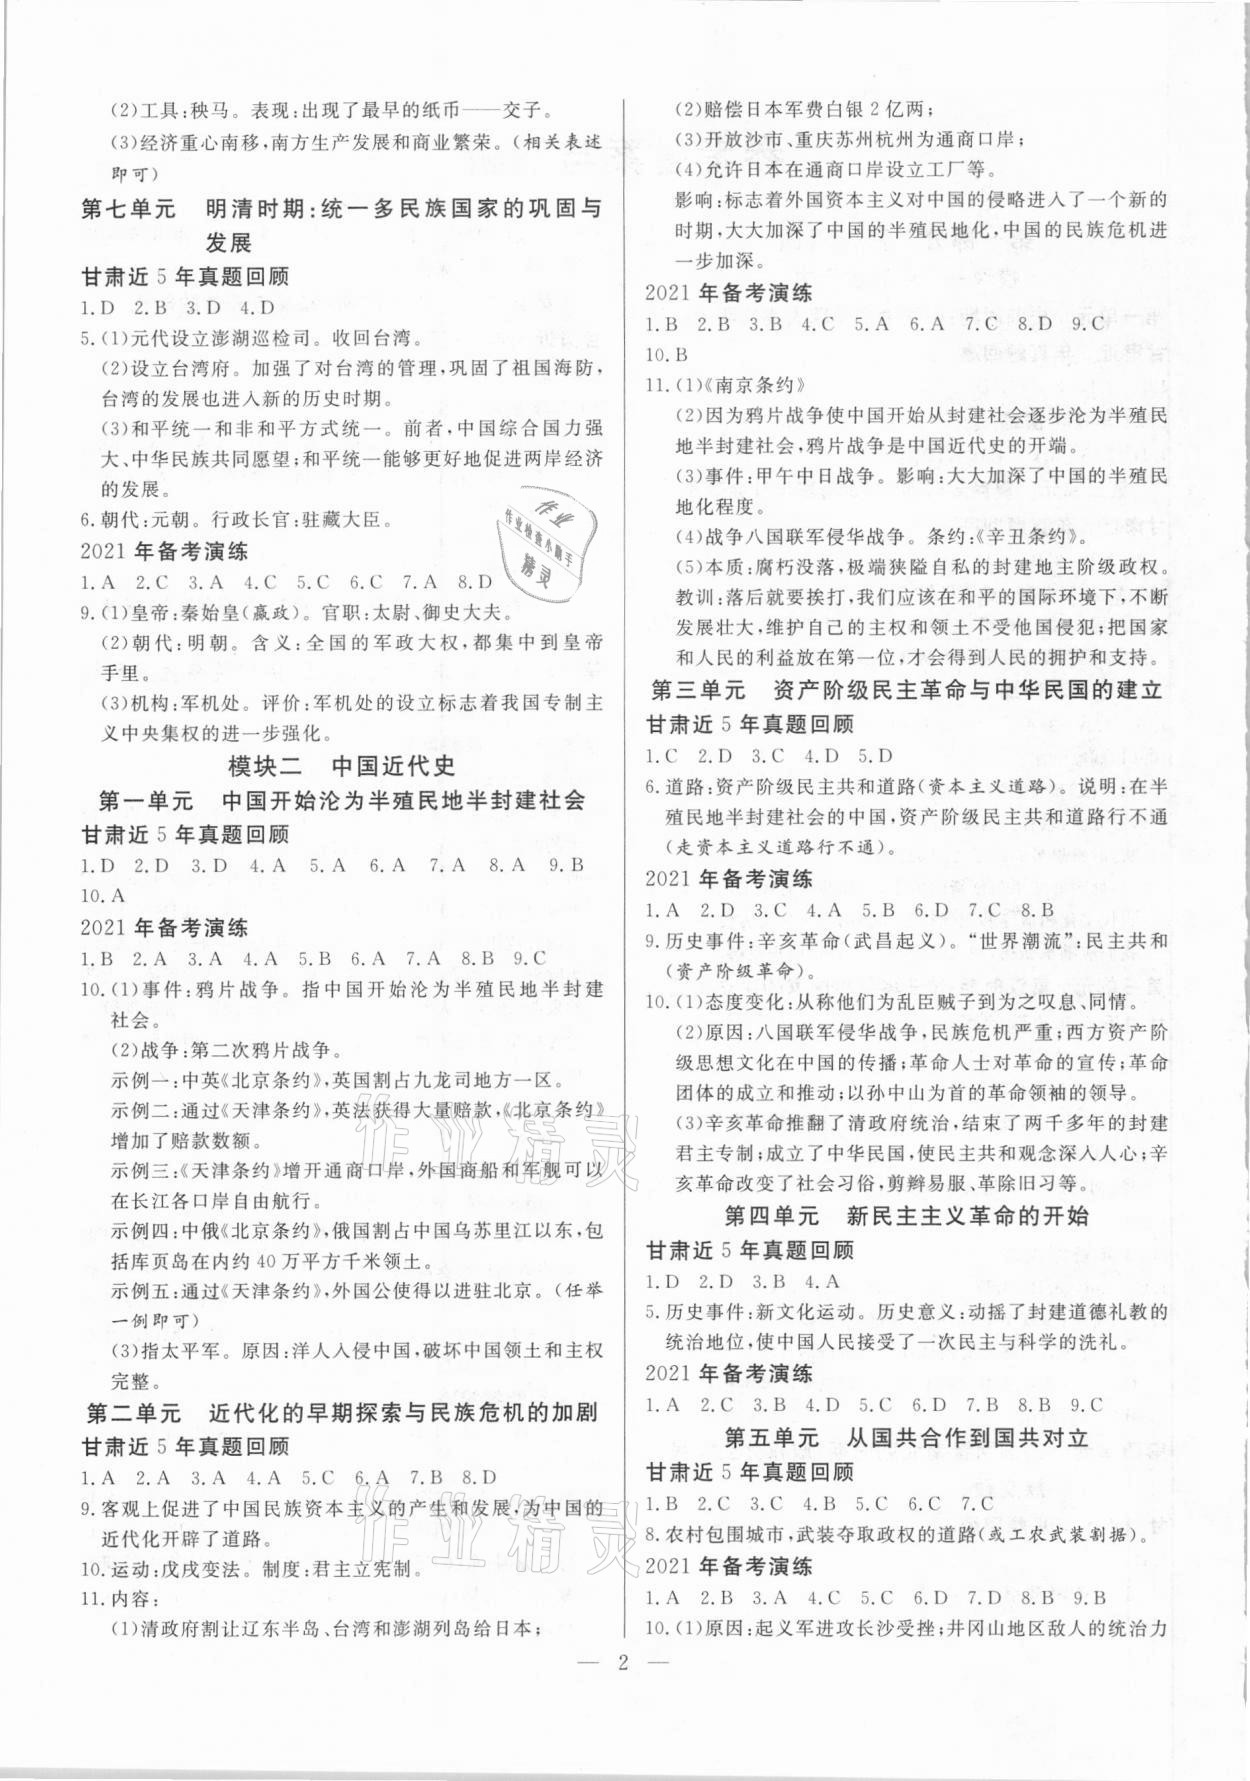 (2)工具:秧马。表现:出现了最早的纸币——交子。
(3)经济重心南移,南方生产发展和商业繁荣。(相关表述
即可)
第七单元 明清时期:统一多民族国家的巩固与
发展
甘肃近5年真题回顾
1.D 2.B 3.D 4.D
5.(1)元代设立澎湖巡检司。收回台湾。
(2)设立台湾府。加强了对台湾的管理,巩固了祖国海防,
台湾的发展也进入新的历史时期。
(3)和平统一和非和平方式统一。前者,中国综合国力强
大、中华民族共同愿望;和平统一能够更好地促进两岸经济
的发展。
6.朝代:元朝。行政长官:驻藏大臣。
2021年备考演练
1.A 2.C 3.A 4.C 5.C 6.A 7.A 8.D
9.(1)皇帝:秦始皇(嬴政)。官职:太尉、御史大夫。
(2)朝代:明朝。含义:全国的军政大权,都集中到皇帝
手里。
(3)机构:军机处。评价:军机处的设立标志着我国专制主
义中央集权的进一步强化。
模块二 中国近代史
第一单元 中国开始沦为半殖民地半封建社会
甘肃近5年真题回顾
1.D 2.D 3.D 4.A 5.A 6.A 7.A 8.A 9.B
10.A
2021年备考演练
1.B 2.A 3.A 4.A 5.B 6.A 7.A 8.B 9.C
10.(1)事件:鸦片战争。指中国开始沦为半殖民地半封建
社会。
(2)战争:第二次鸦片战争。
示例一:中英《北京条约》,英国割占九龙司地方一区。
示例二:通过《天津条约》,英法获得大量赔款,《北京条约》
增加了赔款数额。
示例三:《天津条约》增开通商口岸,外国商船和军舰可以
在长江各口岸自由航行。
示例四:中俄《北京条约》,俄国割占中国乌苏里江以东,包
括库页岛在内约40万平方千米领土。
示例五:通过《天津条约》,外国公使得以进驻北京。(任举
一例即可)
(3)指太平军。原因:洋人入侵中国,破坏中国领土和主权
完整。
第二单元 近代化的早期探索与民族危机的加剧
甘肃近5年真题回顾
1.A 2.A 3.A 4.A 5.C 6.A 7.B 8.D
9.客观上促进了中国民族资本主义的产生和发展,为中国的
近代化开辟了道路。
10.运动:戊戌变法。制度:君主立宪制。
11.内容:
(1)清政府割让辽东半岛、台湾和澎湖列岛给日本;
(2)赔偿日本军费白银2亿两;
(3)开放沙市、重庆苏州杭州为通商口岸;
(4)允许日本在通商口岸设立工厂等。
影响:标志着外国资本主义对中国的侵略进入了一个新的
时期,大大加深了中国的半殖民地化,中国的民族危机进
一步加深。
2021年备考演练
1.B 2.B 3.B 4.C 5.A 6.A 7.C 8.D 9.C
10.B
11.(1)《南京条约》
(2)因为鸦片战争使中国开始从封建社会逐步沦为半殖民
地半封建社会,鸦片战争是中国近代史的开端。
(3)事件:甲午中日战争。影响:大大加深了中国的半殖民
地化程度。
(4)战争八国联军侵华战争。条约:《辛丑条约》。
(5)本质:腐朽没落,极端狭隘自私的封建地主阶级政权。
教训:落后就要挨打,我们应该在和平的国际环境下,不断
发展壮大,维护自己的主权和领土不受他国侵犯;把国家
和人民的利益放在第一位,才会得到人民的拥护和支持。
第三单元 资产阶级民主革命与中华民国的建立
甘肃近5年真题回顾
1.C 2.D 3.C 4.D 5.D
6.道路:资产阶级民主共和道路(资本主义道路)。说明:在半
殖民地半封建社会的中国,资产阶级民主共和道路行不通
(走资本主义道路行不通)。
2021年备考演练
1.A 2.D 3.C 4.A 5.B 6.D 7.C 8.B
9.历史事件:辛亥革命(武昌起义)。“世界潮流”:民主共和
(资产阶级革命)。
10.(1)态度变化:从称他们为乱臣贼子到为之叹息、同情。
(2)原因:八国联军侵华战争,民族危机严重;西方资产阶
级思想文化在中国的传播;革命人士对革命的宣传;革命
团体的成立和推动;以孙中山为首的革命领袖的领导。
(3)辛亥革命推翻了清政府统治,结束了两千多年的封建
君主专制;成立了中华民国,使民主共和观念深入人心;辛
亥革命改变了社会习俗,剪辫易服、革除旧习等。
第四单元 新民主主义革命的开始
甘肃近5年真题回顾
1.D 2.D 3.B 4.A
5.历史事件:新文化运动。历史意义:动摇了封建道德礼教的
统治地位,使中国人民接受了一次民主与科学的洗礼。
2021年备考演练
1.A 2.C 3.B 4.C 5.C 6.D 7.B 8.D 9.C
第五单元 从国共合作到国共对立
甘肃近5年真题回顾
1.B 2.C 3.B 4.C 5.D 6.D 7.C
8.农村包围城市,武装夺取政权的道路(或工农武装割据)。
2021年备考演练
1.A 2.D 3.A 4.C 5.C 6.D 7.A 8.B 9.B
10.(1)原因:起义军进攻长沙受挫;井冈山地区敌人的统治力
— 2 —
作业
作业检查小助手
精灵
作业精灵
作业精灵